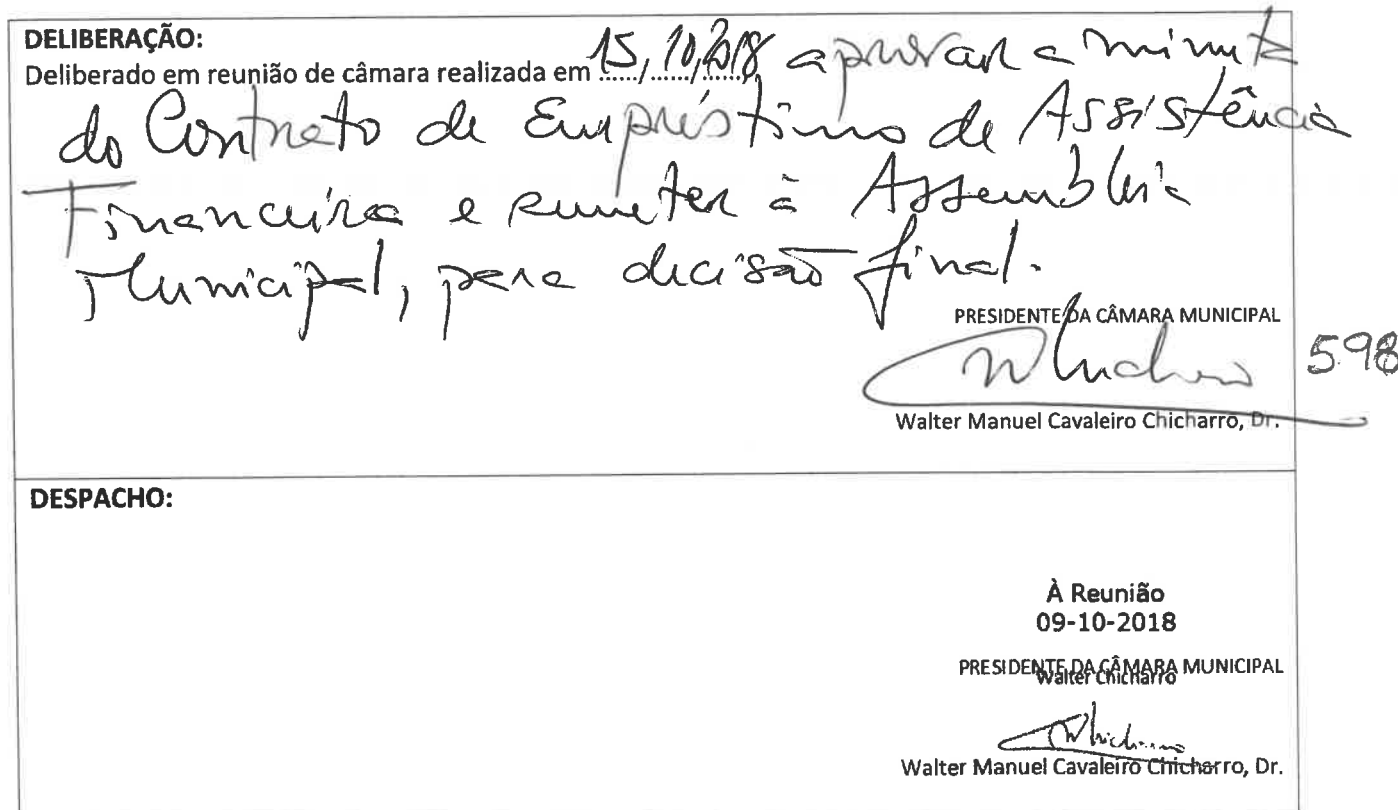 DELIBERAÇÃO:
Deliberado em reunião de câmara realizada em 15/10/2018 aprovar a minuta
do Contrato de Empréstimo de Assistência
Financeira e remeter à Assembleia
Municipal, para decisão final.
PRESIDENTE DA CÂMARA MUNICIPAL
598
Walter Manuel Cavaleiro Chicharro, Dr.
DESPACHO:
À Reunião
09-10-2018
PRESIDENTE DA CÂMARA MUNICIPAL
Walter Chicharro
Walter Manuel Cavaleiro Chicharro, Dr.